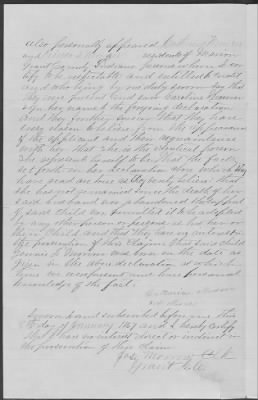 Also personally appeared
and residents of Marion
Grant County Indiana persons whom I cer-
tify to be respectable and entitled to credit
and who being by me duly sworn say that
they were present and saw Caroline
sign her name to the foregoing declaration
and they further swear that they have
every reason to believe from the appearance
of the applicant and their acquaintance
with her that she is the identical person
she represents herself to be that the facts
set forth in her declaration above
are true as they verily believe that
she has not remarried since the death of her
said husband nor abandoned the support
of said child nor permitted it to be adopted
by any other person or persons as his her or
their child and that they have no interest in
the prosecution of this claim that said child
was born on the date as
given in the above declaration
and have personal
knowledge of the fact.
Sworn to and subscribed before me this
day of January 1869 and I hereby certify
that I have no interest direct or indirect in
the prosecution of this claim
Clk
Grant Co